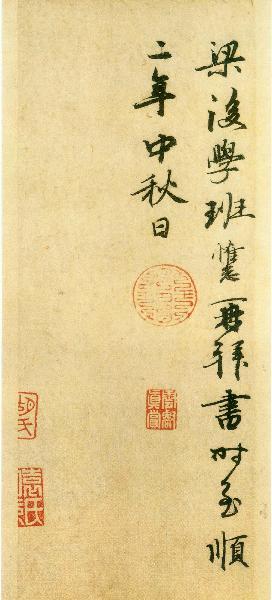 梁後學班惟志再拜書时至順
二年中秋日